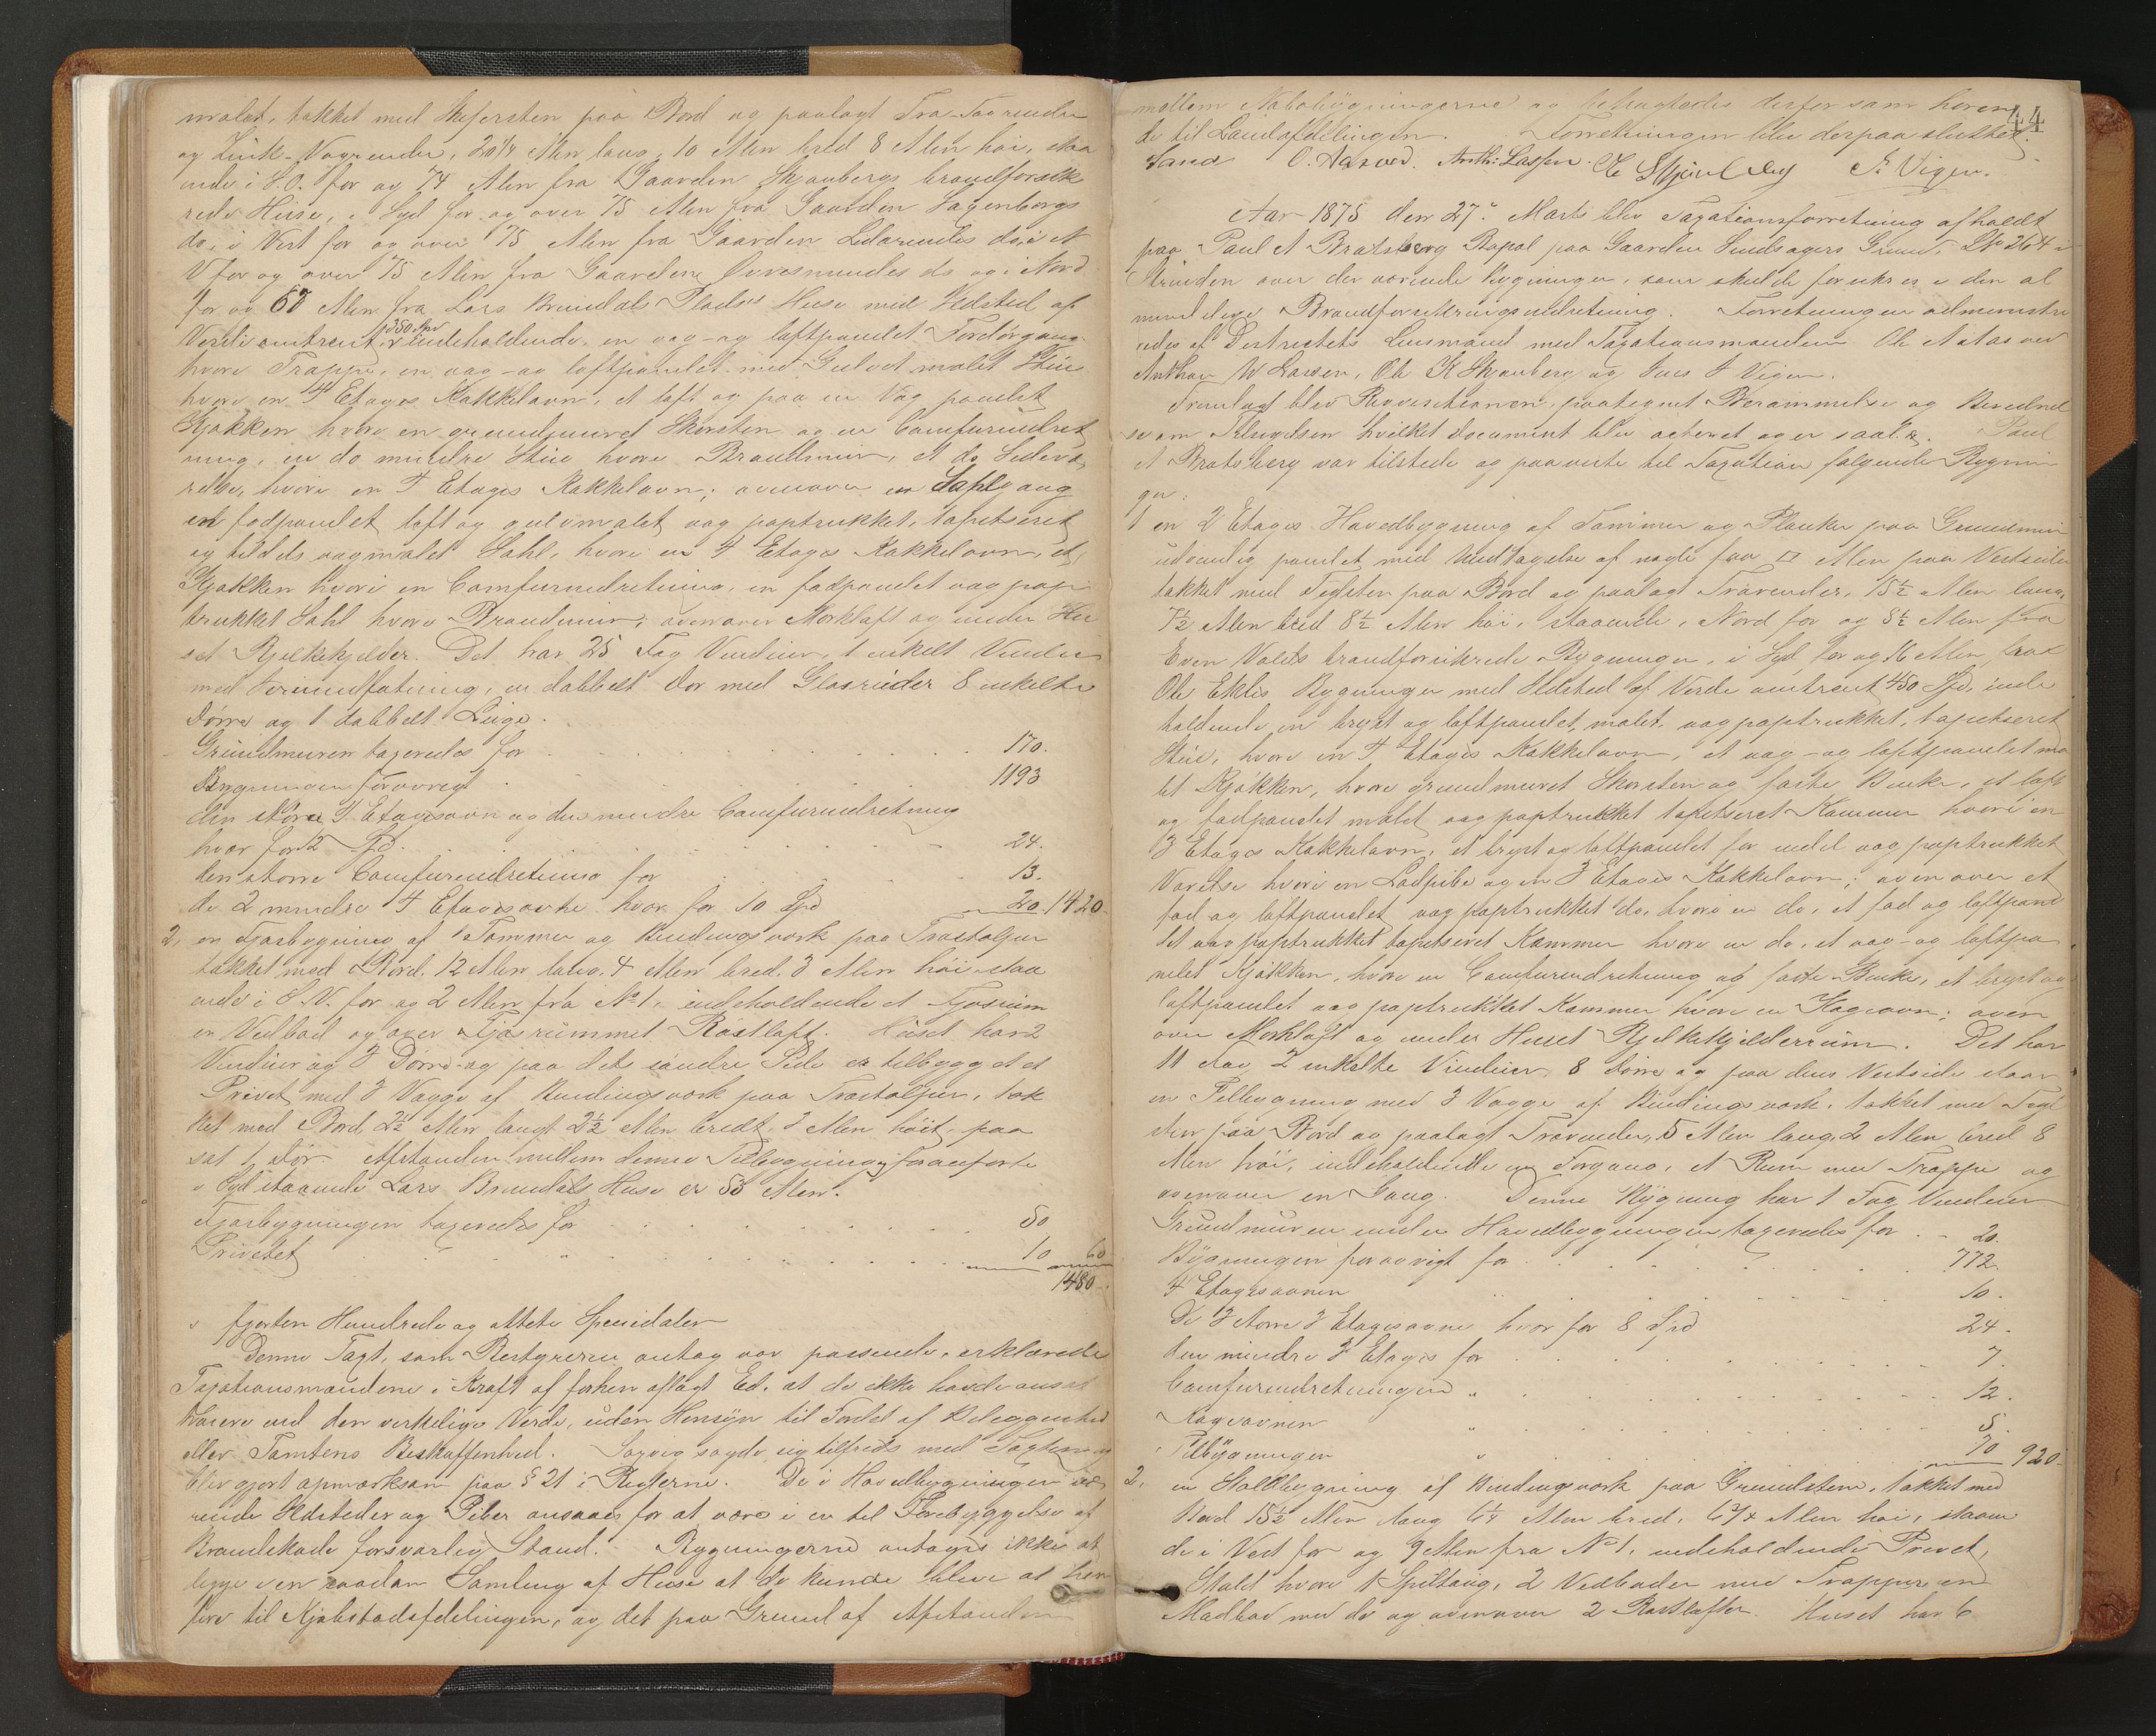 malet, tækket med Skifersten paa Bord og paalagt Træ-Tagrender
og Zink-Vagrender, 20¼ Alen lang, 10 Alen bred 8 Alen høi, staa
ende i S.O. for og 74 Alen fra Gaarden Skjanbergs brandforsik
rede Huse, i Syd for og over 75 Alen fra Gaarden Fagenborgs
do, i Vest for og over 75 Alen fra Gaarden do, i N
V for og over 75 Alen fra Gaardene do og i Nord
for og 67 Alen fra Lars Brundals Plads's Huse med Ildsted af
Værdi omtrent 350 Spd indeholdende, en væg- og loftpanelet Fordørgang
hvori Trappe, en væg- og loftpanelet med Gulvet malet Stue
hvori en 4 Etages Kakkelovn, et loft og paa en Væg panelet
Kjøkken hvori en grundmuret Skorsten og en Comfurindret
ning, en do mindre Stue hvori Brandmur, et do Sidevæ
relse, hvori en 4 Etages Kakkelovn; ovenover en Sahlgang
en fodpanelet loft og gulvmalet væg paptrukket, tapetseret
og tildels vægmalet Sahl, hvori en 4 Etages Kakkelovn, et
Kjøkken hvori en Comfurindretning, en fodpanelet væg pap
trukket Sahl hvori Brandmur; ovenover Mørkloft og under Hu
set Bjelkekjelder. Det har 25 Fag Vinduer, 1 enkelt Vindue
med , en dobbelt Dør med Glasruder 8 enkelte
Dørre og 1 dobbelt Luge.
Grundmuren taxeredes for 170.
Bygningen forøvrigt 1193
den større 4 Etagesovn og den mindre Comfurindretning
hver for 12 Spd. 24.
den større Comfurindretning for 13.
de 2 mindre 4 Etagesovne hver for 10 Spd 20. 1420
2, en Fjøsbygning af Tømmer og Bindingsværk paa Træstolper
tækket med Bord. 12 Alen lang, 4 Alen bred, 3 Alen høi staa
ende i S.V. for og 2 Alen fra No 1, indeholdende et Fjøsrum
en Vedbod og over Fjøsrummet Røstloft. Huset har 2
Vinduer og 3 Dørre og paa det søndre Side er tilbygget et
Privet med 3 Vægge af Bindingsværk paa Træstolper, tæk
ket med Bord, 2½ Alen langt 2½ Alen bredt, 3 Alen høit, paa
sat 1 Dør. Afstanden mellem denne Tilbygning og foranførte
i Syd staaende Lars Brundals Huse er 53 Alen.
Fjøsbygningen taxeredes for 50
Privetet " " 10 60
1480
fjorten Hundrede og otteti Speciedaler
Denne Taxt, som Bestyreren antog var passende, erklærede
Taxationsmændene i Kraft af forhen aflagt Ed, at de ikke havde ansat
høiere end den virkelige Værdi, uden Hensyn til Fordel af Beliggenhed
eller Tomtens Beskaffenhed. sagde sig tilfreds med Taxten og
blev gjort opmærksom paa § 21 i Reglerne. De i Hovedbygningen væ
rende Ildsteder og Piber ansaaes for at være i en til Forebyggelse af
Brandskade forsvarlig Stand. Bygningerne antages ikke at
ligge i en saadan Samling af Huse at de kunde blive at hen
føre til Kjøbstadafdelingen, og det paa Grund af Afstanden
44
mellem Nabobygningerne og betragtedes derfor som høren
de til Landafdelingen. Forretningen blev derpaa sluttet.
Sand O. Aasved. Anth: Lassen. J. Vigen.
Aar 1875 den 27de Marts blev Taxationsforretning afholdt
paa Paul A Bratsberg Bopæl paa Gaarden Grund, LNo 264 i
Strinden over der værende Bygninger, som skulde forsikres i den al
mindelige Brandforsikringsindretning. Forretningen administre
redes af Districtets Lensmand med Taxationsmændene Ole A Aasved
Anthon W Lassen, Ole K Skjanberg og Jens J Vigen.
Fremlagt blev Requisitionen, paategnet Berammelse og Beediget
se om Tilsigelsen hvilket document blev acteret og er saal. Paul
A Bratsberg var tilstede og paaviste til Taxation følgende Bygnin
ger:
1 en 2 Etages Hovedbygning af Tømmer og Planker paa Grundmur
udvendig panelet med Undtagelse af nogle faa □ Alen paa Vestsiden
tækket med Teglsten paa Bord og paalagt Trærender, 15½ Alen lang,
7½ Alen bred 8½ Alen høi, staaende i Nord for og 5½ Alen fra
Even Volds brandforsikrede Bygninger, i Syd for og 16 Alen fra
Ole Ekles Bygninger med Ildsted af Værdi omtrent 450 Spd, inde
holdende en bryst og loftpanelet, malet, væg paptrukket, tapetseret
Stue, hvori en 4 Etages Kakkelovn, et væg- og loftpanelet ma
let Kjøkken, hvori grundmuret Skorsten og faste Bænke, et loft
og fodpanelet malet væg paptrukket tapetseret Kammer hvori en
3 Etages Kakkelovn, et bryst og loftpanelet for endel væg paptrukket
Værelse hvori en Lodpibe og en 3 Etages Kakkelovn; ovenover et
fod og loftpanelet væg paptrukket do, hvori en do, et fod og loftpane
let væg paptrukket tapetseret Kammer hvori en do, et væg- og loftpa
nelet Kjøkken, hvori en Comfurindretning og faste Bænke, et bryst og
loftpanelet væg paptrukket Kammer hvori en Kogeovn; oven
over Mørkloft og under Huset Bjelkekjelderrum. Det har
11 Fag, 2 enkelte Vinduer, 8 Dørre og paa dens Vestside staar
en Tilbygning med 3 Vægge af Bindingsværk, tækket med Tegl
sten paa Bord og paalagt Trærender, 5 Alen lang, 2 Alen bred 8
Alen høi, indeholdende en Forgang, et Rum med Trappe og
ovenover en Gang. Denne Bygning har 1 Fag Vinduer
Grundmuren under Hovedbygningen taxeredes for 20.
Bygningen forøvrigt for 772.
4 Etagesovnen " 10.
De 3 større 3 Etagesovne hver for 8 Spd 24.
den mindre 3 Etages for 7.
Comfurindretningen " 12.
Kogeovnen " 5.
Tilbygningen " 70 920
2, en Staldbygning af Bindingsværk paa Grundstene, tækket med
Bord 15½ Alen lang 6¼ Alen bred, 6¾ Alen høi, staaen
de i Vest for og 9 Alen fra No 1, indeholdende Privet,
Stald hvori 1 Spiltaug, 2 Vedboder med Trapper en
Madbod med do og ovenover 2 Røstlofter. Huset har 6